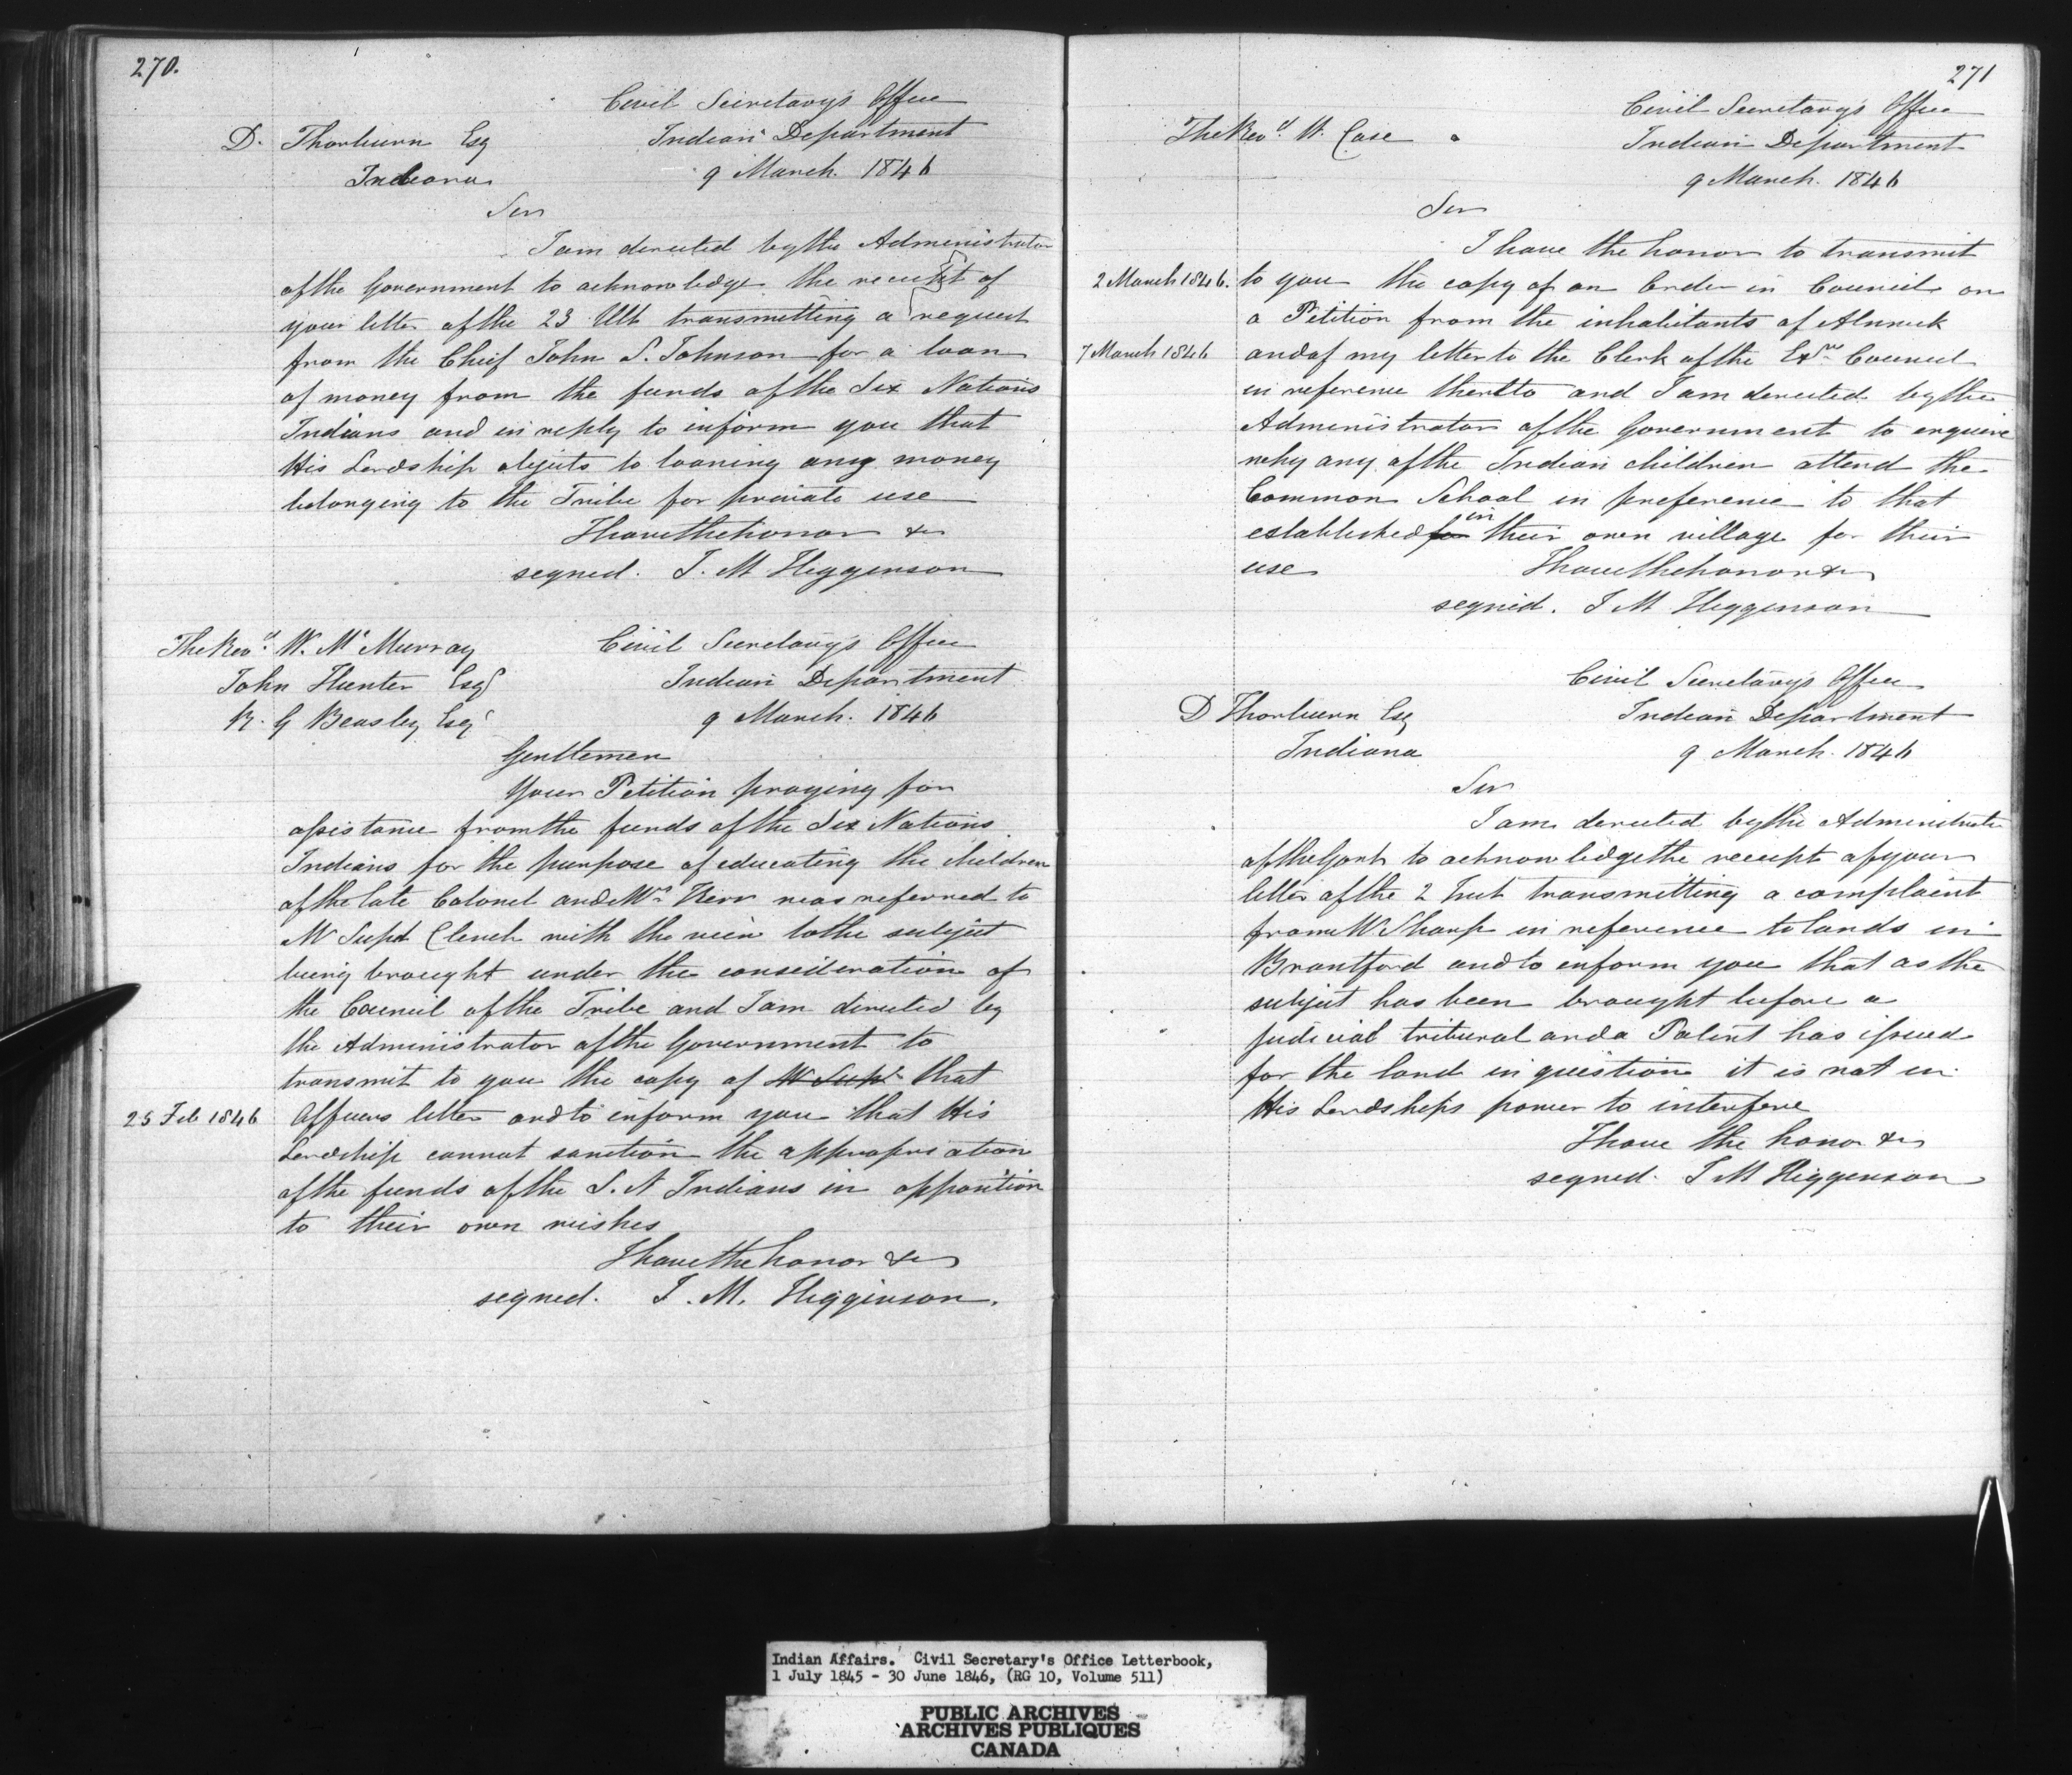 270.
Civil Secretary's Office
D. Thorburn Esq
Indian Department
Indiana
9 March 1846
Sir
I am directed by the Administrator
of the Government to acknowledge the receipt of
your letter of the 23 Ult transmitting a request
from the Chief John S. Johnson for a loan
of money from the funds of the Six Nations
Indians and in reply to inform you that
His Lordship objects to loaning any money
belonging to the Tribe for private use
I have the honor &c
signed. J. M Higginson
The Revd W. Mc Murray
Civil Secretary's Office
John Hunter Esqr
Indian Department
R. G Beasley Esqr
9 March. 1846
Gentlemen
Your Petition praying for
assistance from the funds of the Six Nations
Indians for the purpose of educating the children
of the late Colonel and Mrs Kerr was referred to
Mr Supt Clench with the view to the subject
being brought under the consideration of
the Council of the Tribe and I am directed by
the Administrator of the Government to
transmit to you the copy of Mr Supt that
25 Feb 1846
Officers letter and to inform you that His
Lordship cannot sanction the appropriation
of the funds of the S. N Indians in opposition
to their own wishes
I have the honor &c
signed. J. M. Higginson.
271
Civil Secretary's Office
The Revd W. Case
Indian Department
9 March. 1846
Sir
I have the honor to transmit
2 March 1846.
to you the copy of an Order in Council on
a Petition from the inhabitants of Alnwick
7 March 1846
and of my letter to the Clerk of the Exve Council
in reference thereto and I am directed by the
Administrator of the Government to enquire
why any of the Indian children attend the
Common School in preference to that
established for in their own village for their
use
I have the honor &c
signed. J M Higginson
Civil Secretary's Office
D Thorburn Esq
Indian Department
Indiana
9 March. 1846
Sir
I am directed by the Administrator
of the Govt to acknowledge the receipt of your
letter of the 2 Inst transmitting a complaint
from Mr Sharp in reference to lands in
Brantford and to inform you that as the
subject has been brought before a
judicial tribunal and a Patent has issued
for the land in question it is not in
His Lordships power to interfere
I have the honor &c
signed. J M Higginson
Indian Affairs. Civil Secretary's Office Letterbook,
1 July 1845 - 30 June 1846, (RG 10, Volume 511)
PUBLIC ARCHIVES
ARCHIVES PUBLIQUES
CANADA